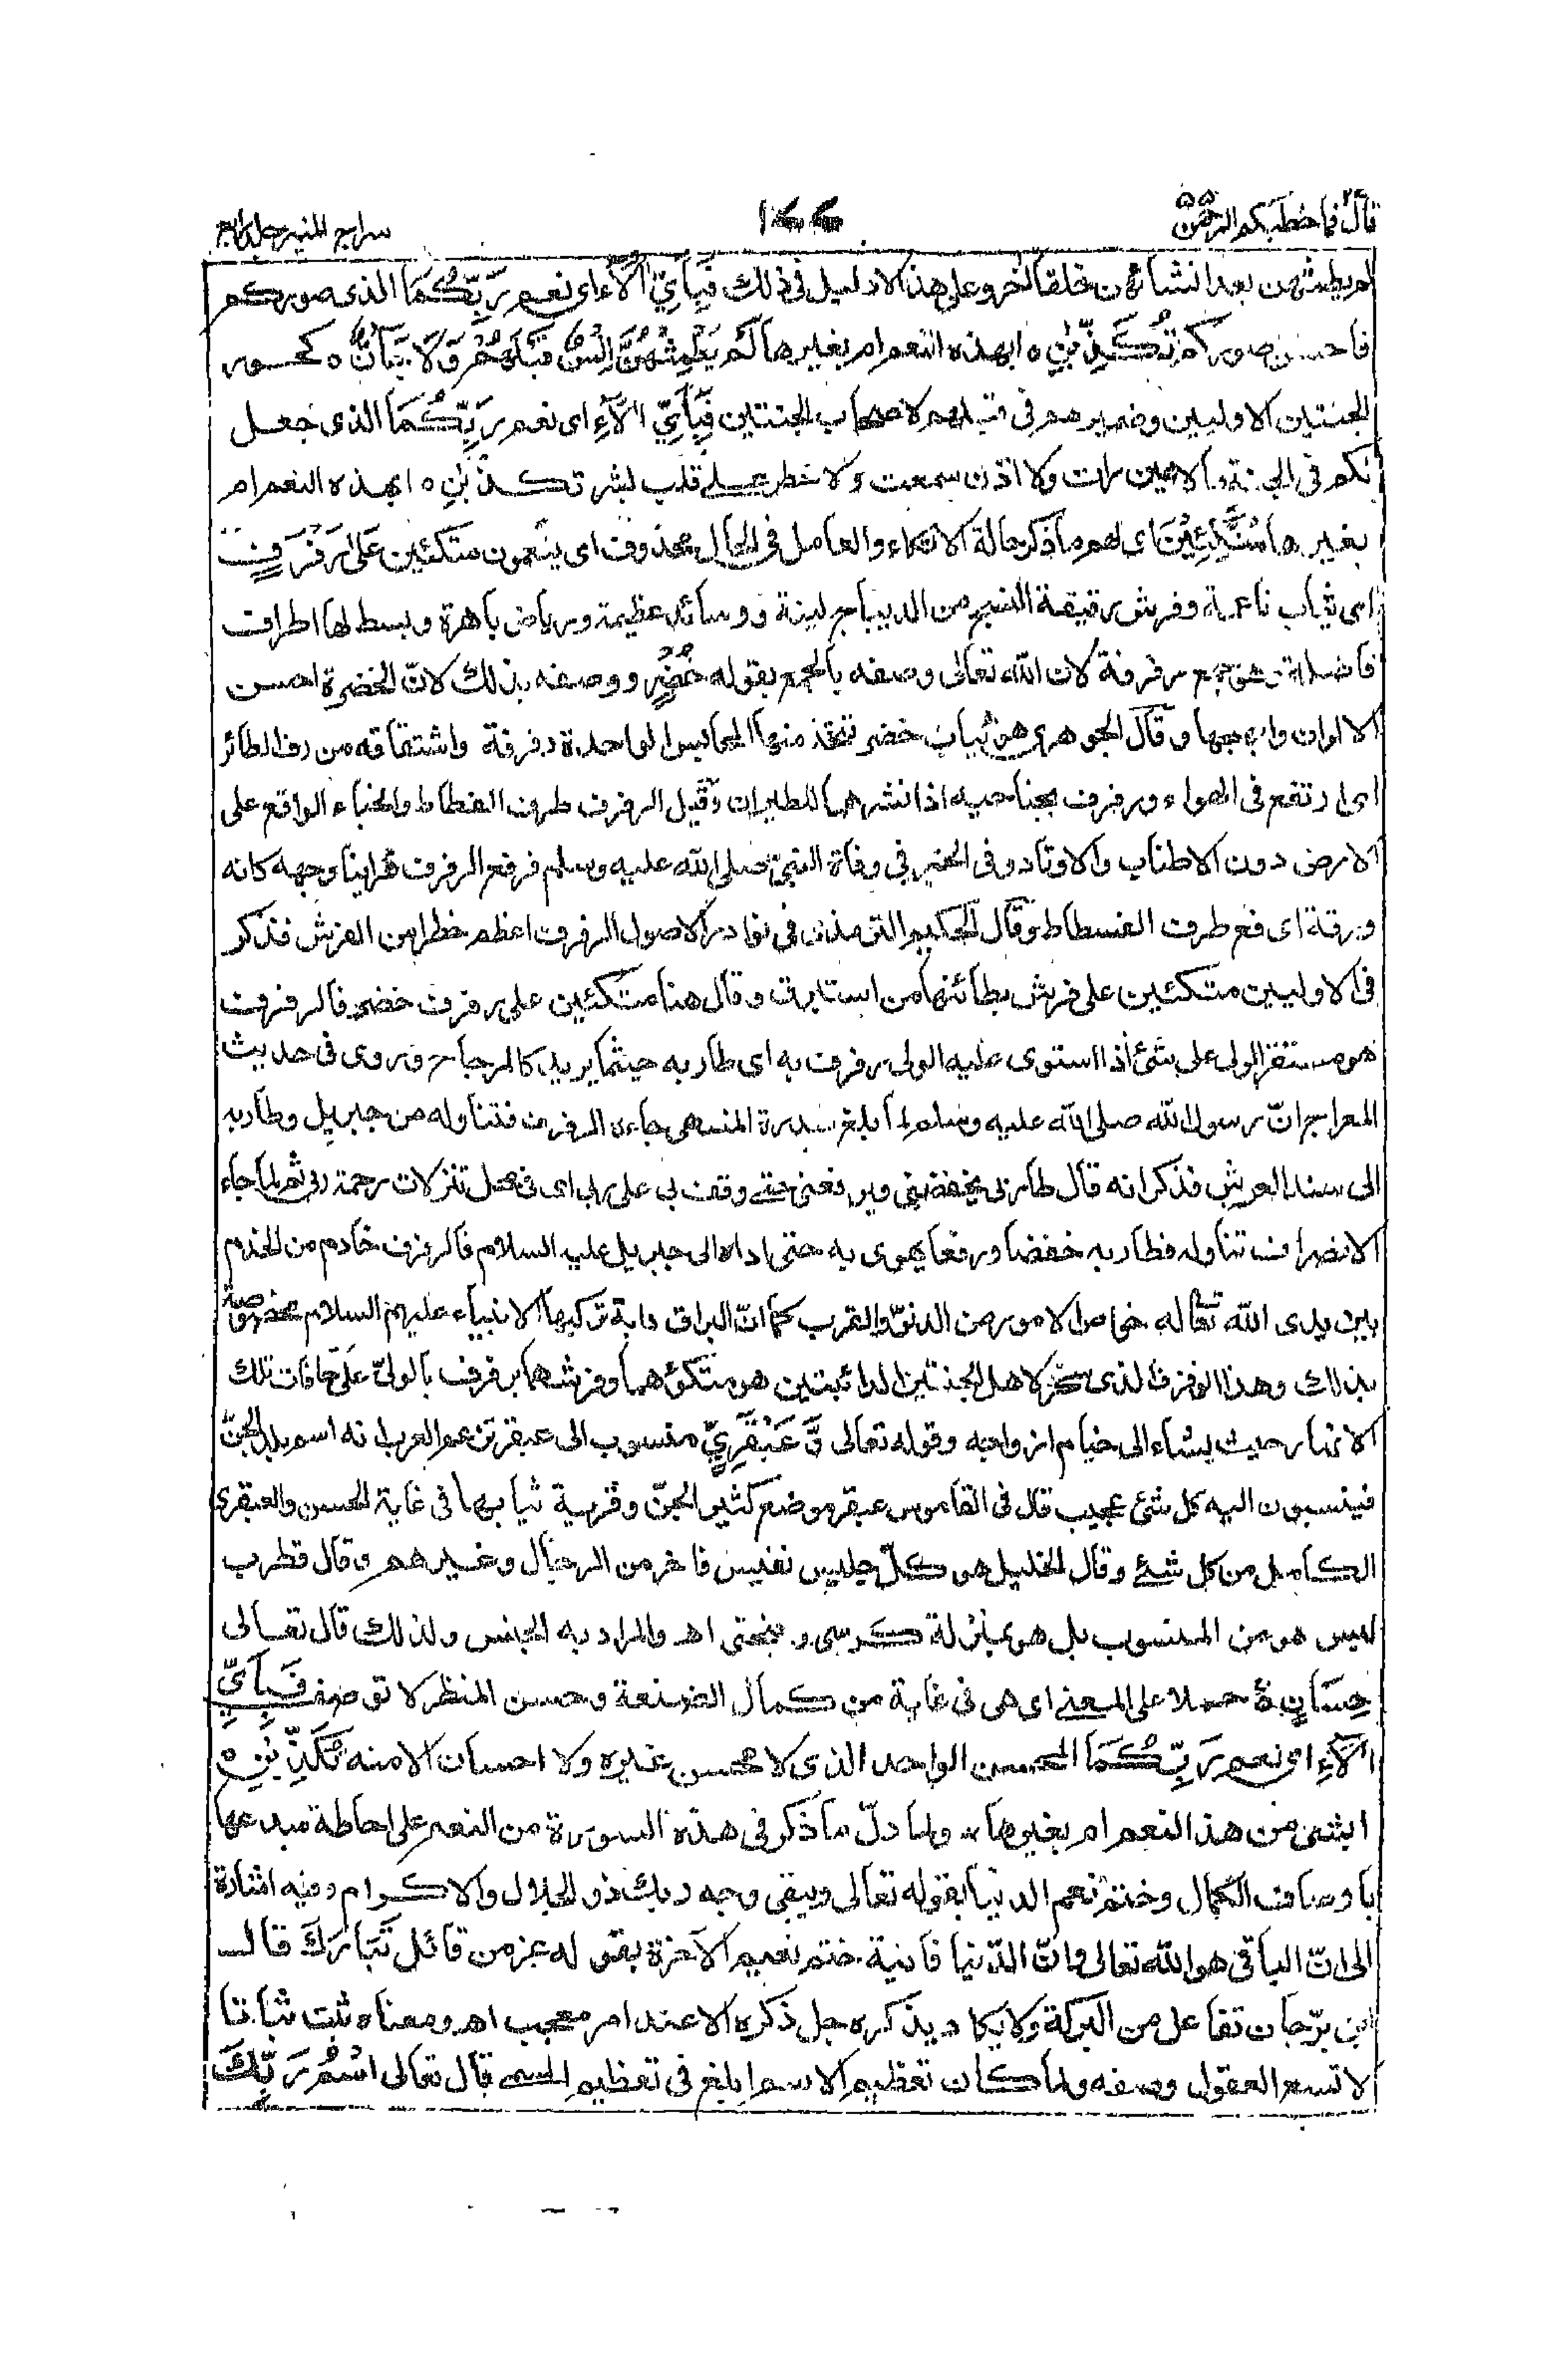 قال فما خطبكم ٢٧ الرحمن ٥٥
سراج المنير جلد رابع
لم يطمثهن بعد انشائهن خلقا اخر وعلى هذا لا دليل فى ذلك فَبِاَيِّ اٰلَآءِ اى نعم رَبِّكُمَا الذى صوركم
فاحسن صوركم تُكَذِّبٰنِ ه ابهذه النعم ام بغيرها لَمْ يَطْمِثْهُنَّ اِنْسٌ قَبْلَهُمْ وَلَا جَآنٌّ ه كحور
الجنتين الاوليين وضمير هم فى قبلهم لاصحاب الجنتين فَبِاَيِّ اٰلَآءِ اى نعم رَبِّكُمَا الذى جعل
لكم فى الجنة ما لا عين رات ولا اذن سمعت ولا خطر على قلب بشر تكذّبٰنِ ه ابهذه النعم ام
بغيرها مُتَّكِئِيْنَ اى لهم ما ذكر حالة الاتكاء والعامل فى الحال محذوف اى ينعمون متكئين عَلٰى رَفْرَفٍ
اى ثياب ناعمة وفرش رقيقة النسج من الديباج لينة ووسائد عظيمة ورياض باهرة وبسط لها اطراف
فاضلة جمع رفرفة لان الله تعالى وصفه بالجمع بقوله خُضْرٍ ووصفه بذلك لانّ الخضرة احسن
الالوان وابهجها وقال الجوهرى هو ثياب خضر تتخذ منها المحابس الواحدة رفرفة واشتقاقه من رف الطائر
اى ارتفع فى الهواء ورفرف بجناحيه اذا نشرهما للطيران وقيل الرفرف طرف الفسطاط والخباء الواقع على
الارض دون الاطناب والاوتاد وفى الخبر فى وفاة النبى صلى الله عليه وسلم فرفع الرفرف فراينا وجهه كانه
ورقة اى فرفع طرف الفسطاط وقال الحكيم الترمذى فى نوادر الاصول الرفرف اعظم خطرا من الفرش فذكر
فى الاوليين متكئين على فرش بطائنها من استبرق وقال هنا متكئين على رفرف خضر فالرفرف
هو مستقر الولى على شئ اذا استوى عليه الولى رفرف به اى طار به حيثما يريد كالمرجاح وروى فى حديث
المعراج انّ رسول الله صلى الله عليه وسلم لما بلغ سدرة المنتهى جاءه الرفرف فتناوله من جبريل وطار به
الى سند العرش فذكر انه قال طار بى يخفضنى ويرفعنى حتى وقف بى على ربى اى فى محل تنزلات رحمة ربى ثم لما جاء
الانصراف تناوله فطار به خفضا ورفعا يهوى به حتى اداه الى جبريل عليه السلام فالرفرف خادم من الخدم
بين يدى الله تعالى له خواص الامور من الدنوّ والقرب كما انّ البراق دابة تركبها الانبياء عليهم السلام مخصوصة
بذلك وهذا الرفرف الذى سخر لاهل الجنتين الدانيتين هو متكؤهما وفرشهما يرفرف بالولىّ على حافات تلك
الانهار حيث يشاء الى خيام ازواجه وقوله تعالى وَّ عَبْقَرِيٍّ منسوب الى عبقر تزعم العرب انه اسم بلد الجنّ
فينسبون اليه كل شئ عجيب قال فى القاموس عبقر موضع كثير الجنّ وقرية ثيابها فى غاية الحسن والعبقرى
الكامل من كل شئ وقال الخليل هو كلّ جليس نفيس فاخر من الرجال وغيرهم وقال قطرب
ليس هو من المنسوب بل هو بمنزلة كرسى وبختى اه والمراد به الجنس ولذلك قال تعالى
حِسَانٍ ه حملا على المعنى اى هى فى غاية من كمال الصنعة وحسن المنظر لا توصف فَبِاَيِّ
اٰلَآءِ اى نعم رَبِّكُمَا المحسن الواحد الذى لا محسن غيره ولا احسان الا منه تُكَذِّبٰنِ ه
ابشئ من هذا النعم ام بغيرها ولما دلّ ما ذكر فى هذه السورة من النعم على احاطة مبدعها
باوصاف الكمال وختم نعم الدنيا بقوله تعالى ويبقى وجه ربك ذو الجلال والاكرام وفيه اشارة
الى انّ الباقى هو الله تعالى وانّ الدّنيا فانية ختم نعيم الآخرة بقوله عز من قائل تَبَارَكَ قال
ابن برّجان تفاعل من البركة ولا يكاد يذكره جل ذكره الا عند امر معجب اه ومعناه ثبت ثباتا
لا تسع العقول وصفه ولما كان تعظيم الاسم ابلغ فى تعظيم المسمى قال تعالى اسْمُ رَبِّكَ